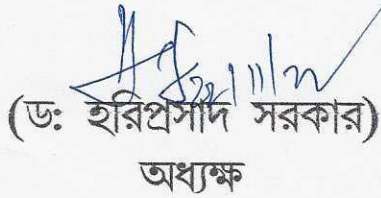 (ড: হরিপ্রসাদ সরকার)
অধ্যক্ষ